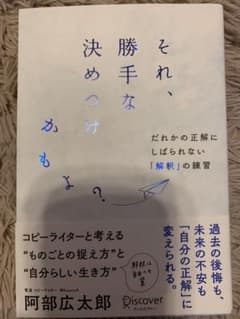 それ、
勝手な
決めつけ
かもよ?
だれかの正解に
しばられない
「解釈」の練習
過去の後悔も、
未来の不安も
「自分の正解」に
変えられる。
コピーライターと考える
“ものごとの捉え方”と
“自分らしい生き方”
阿部広太郎
Discover